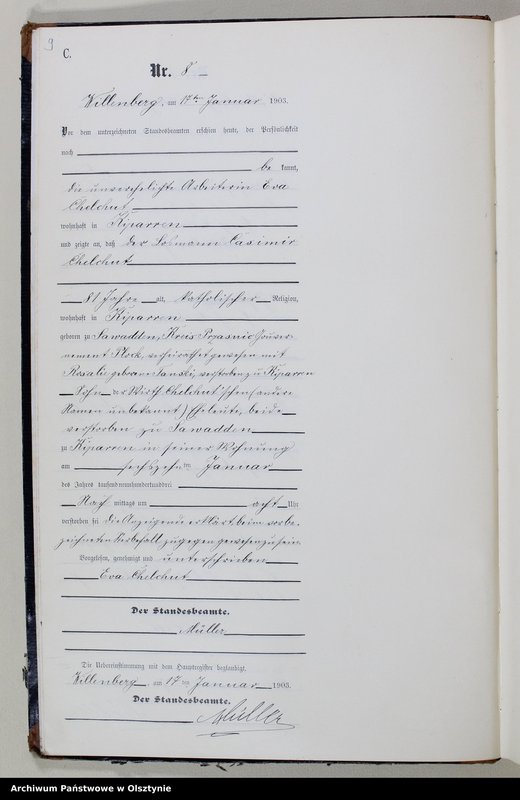 9
C.
Nr. 8
Willenberg, am 17ten Januar 1903.
Vor dem unterzeichneten Standesbeamten erschien heute, der Persönlichkeit
nach
be kannt,
die unverehelichte Arbeiterin Eva
Chelchut
wohnhaft in Kiparren
und zeigte an, daß der Losmann Casimir
Chelchut
81 Jahre alt, katholischer Religion,
wohnhaft in Kiparren
geboren zu Sawadden, Kreis Prasnic Gouver-
nement Plock, verheirathet gewesen mit
Rosalie geborene verstorben zu Kiparren
Sohn der Wirth Chelchut'schen (andere
Namen unbekannt) Eheleute, beide
verstorben zu Sawadden
zu Kiparren in seiner Wohnung
am sechszehnten Januar
des Jahres tausendneunhundertunddrei
Nach mittags um acht Uhr
verstorben sei die Anzeigende erklärt beim vorbe-
zeichneten Sterbefall zugegen gewesen zu sein.
Vorgelesen, genehmigt und unterschrieben
Eva Chelchut
Der Standesbeamte.
Müller
Die Uebereinstimmung mit dem Hauptregister beglaubigt.
Willenberg, am 17 ten Januar 1903.
Der Standesbeamte.
Müller
Archiwum Państwowe w Olsztynie